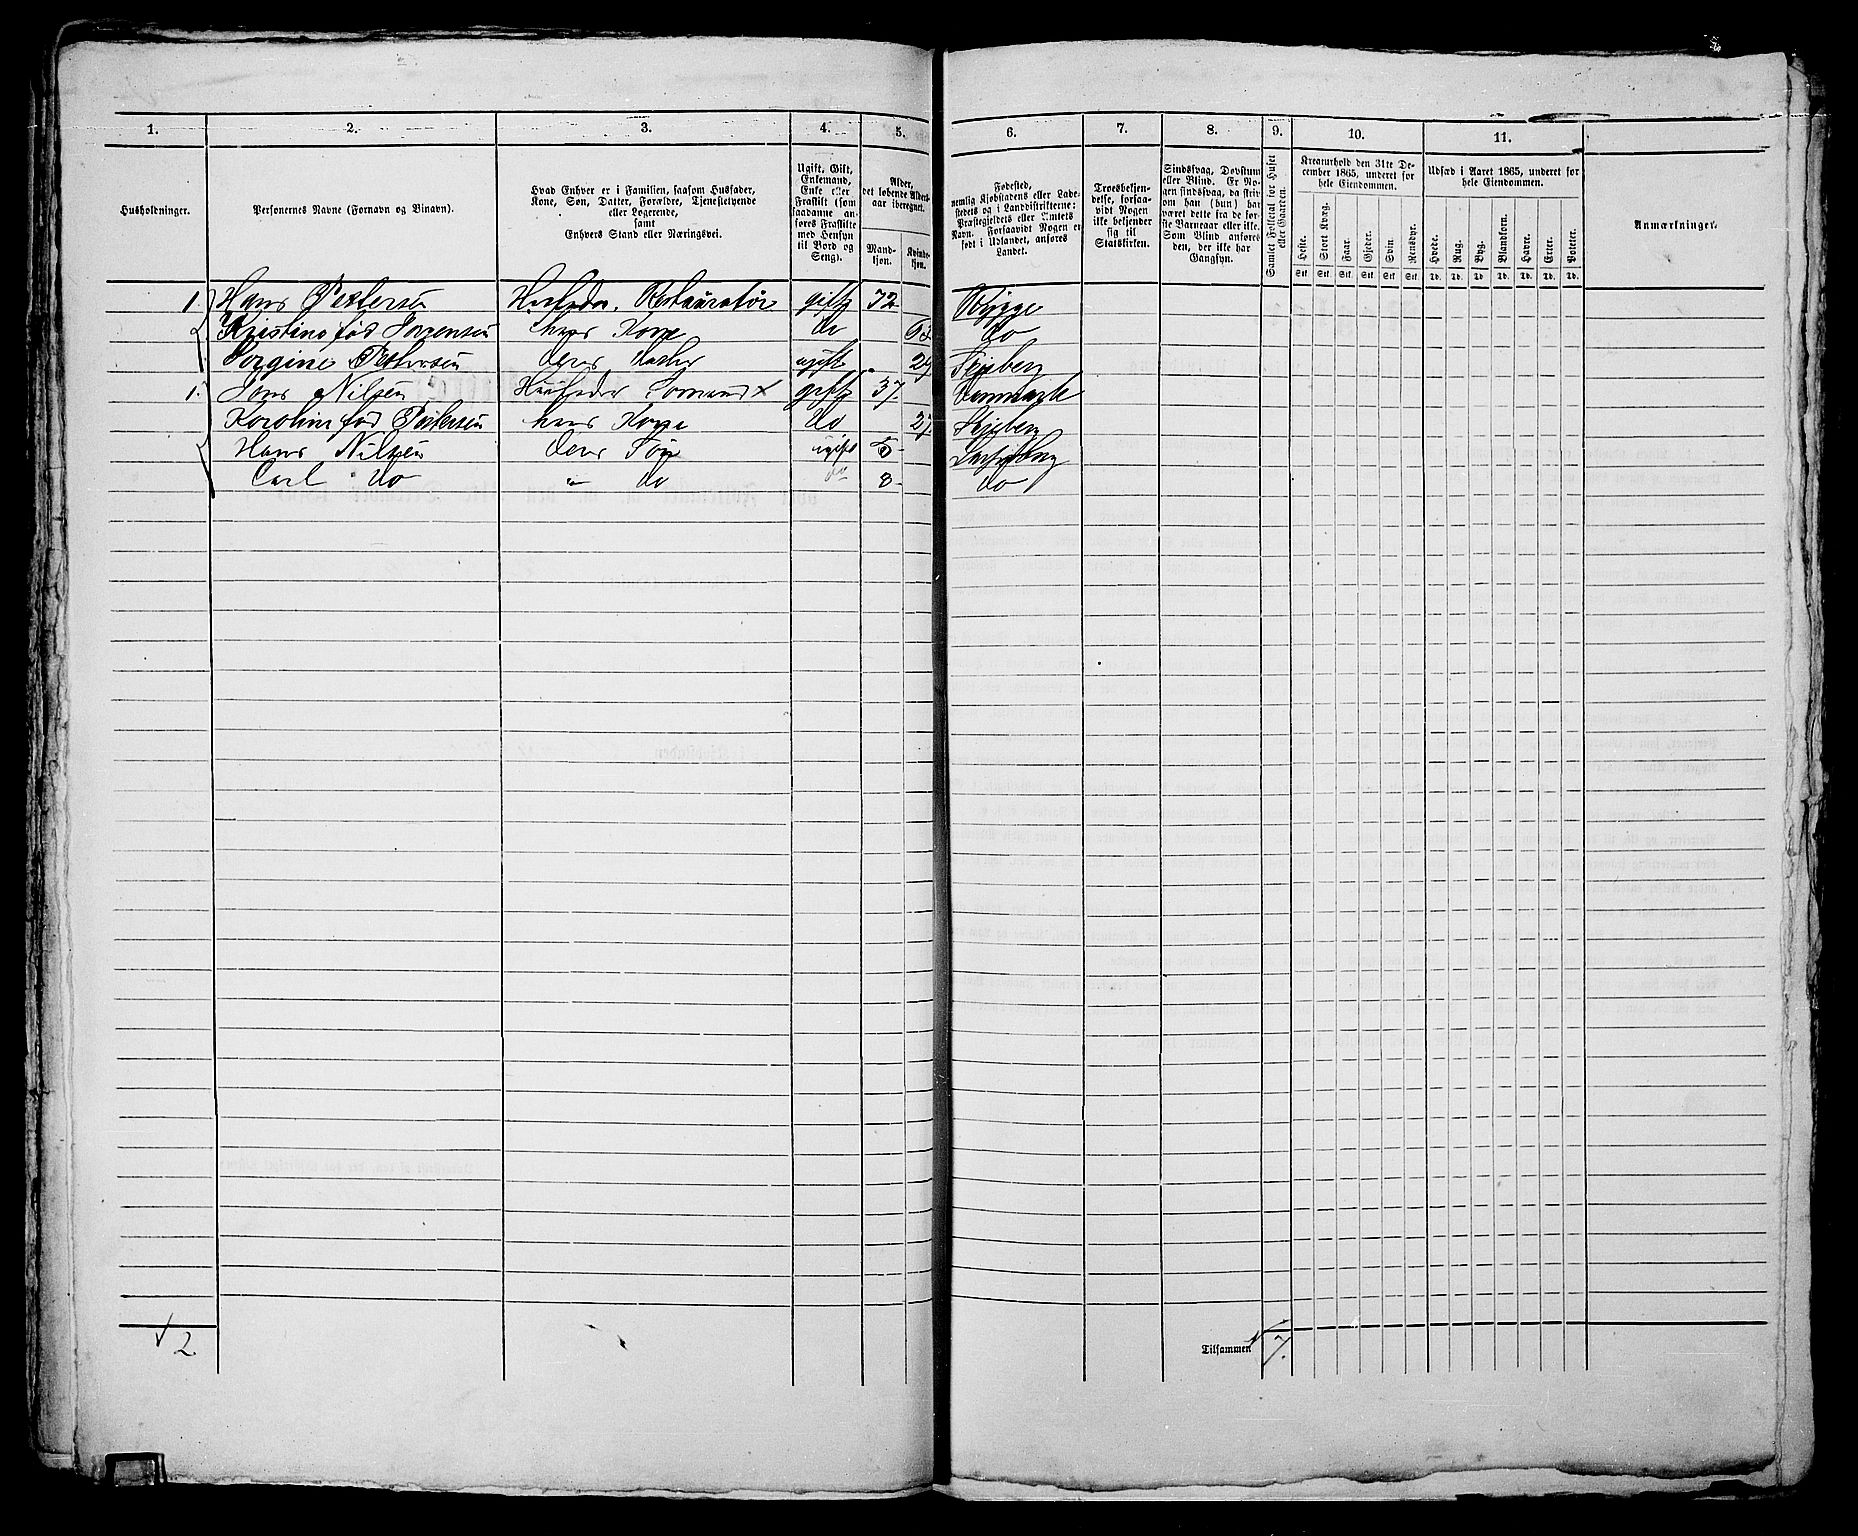 1. 2. 3. 4. 5. 6. 7. 8. 9. 10. 11.
Husholdninger.
Personernes Navne (Fornavn og Binavn).
Hvad Enhver er i Familien, saasom Husfader,
Kone, Søn, Datter, Forældre, Tjenestetyende
eller Logerende,
samt
Enhvers Stand eller Næringsvei.
Ugift, Gift,
Enkemand,
Enke eller
Fraskilt (som
saadanne an-
føres Fraskilte
med Hensyn
til Bord og
Seng).
Alder,
det løbende Alders-
aar iberegnet.
Mand-
kjøn.
Kvinde-
kjøn.
Fødested,
nemlig Kjøbstadens eller Lade-
stedets og i Landdistrikterne:
Præstegjeldets eller Amtets
Navn. Forsaavidt Nogen er
født i Udlandet, anføres
Landet.
Troesbekjen-
delse, forsaa-
vidt Nogen
ikke bekjender
sig til
Statskirken.
Sindssvag, Døvstum
eller Blind. Er No-
gen sindssvag, da skriv
om han (hun) har
været dette fra de før-
ste Barneaar eller ikke.
Som Blind anføres
den, der ikke har
Gangsyn.
Samlet Folketal for Huset
eller Gaarden.
Kreaturhold den 31te De-
cember 1865, underet for
hele Eiendommen.
Heste. Stort Kvæg. Faar. Gjeder. Svin. Rensdyr.
Stk. Stk. Stk. Stk. Stk. Stk.
Udsæd i Aaret 1865, underet for
hele Eiendommen.
Hvede. Rug. Byg. Blandkorn. Havre. Erter. Poteter.
Td. Td. Td. Td. Td. Td. Td.
Anmærkninger.
1. Hans Pettersen Husfader, Restauratør gift 72 Rygge
Kristine fød Jørgensen hans Kone do 63 do
Jorgine Pettersen deres Datter ugift 24 Skjeberg
1. Jøns Nilsen Husfader Sømand x gift 37. Danmark
Karoline fød Pettersen hans Kone do 27. Skjeberg
Hans Nilsen deres Søn ugift 5
Carl do " do do 8 do
2
Tilsammen 7.